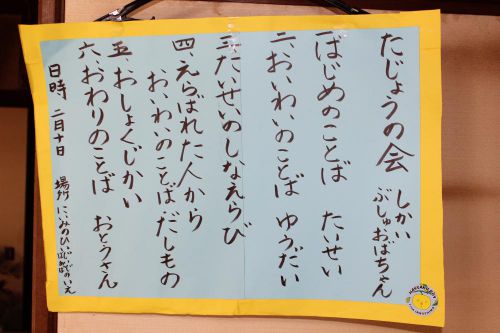 たじょうの会
しかい
ぶしゅおばちゃん
一はじめのことば たいせい
二、おいわいのことば ゆうだい
三たいせいのしなえらび
四、えらばれた人から
おいわいのことばだしもの
五、おしょくじかい
六、おわりのことば おとうさん
日時 二月十日
場所 にいみのひいばあば